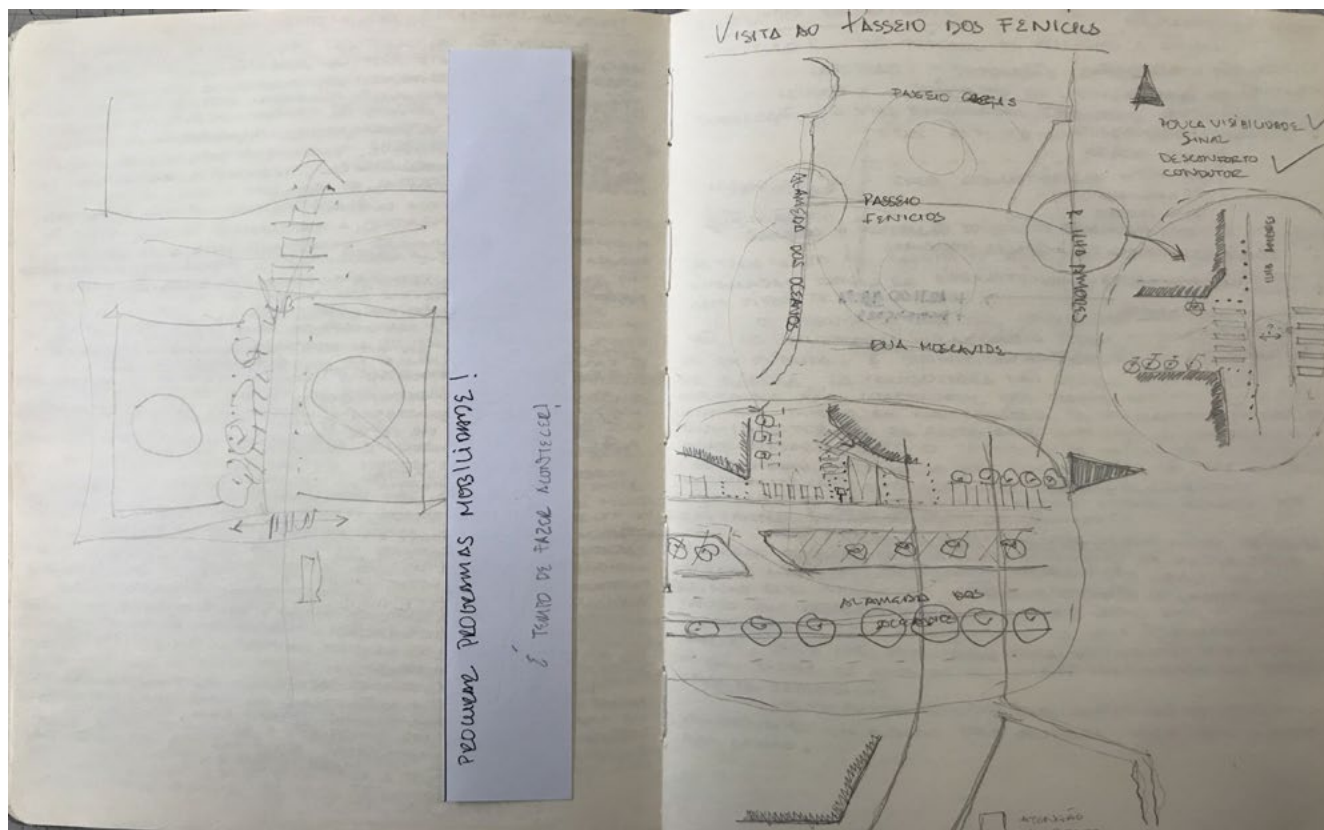 PROCURAR PROGRAMAS MOBILIDADE!
É TEMPO DE FAZER ACONTECER!
VISITA AO PASSEIO DOS FENICIOS
PASSEIO
POUCA VISIBILIDADE
SINAL
DESCONFORTO
CONDUTOR
ALAMEDA DOS OCEANOS
PASSEIO
FENICIOS
R. ILHA AMORES
ILHA AMORES
RUA MOSCAVIDE
ALAMEDA DOS
OCEANOS
ATENÇÃO